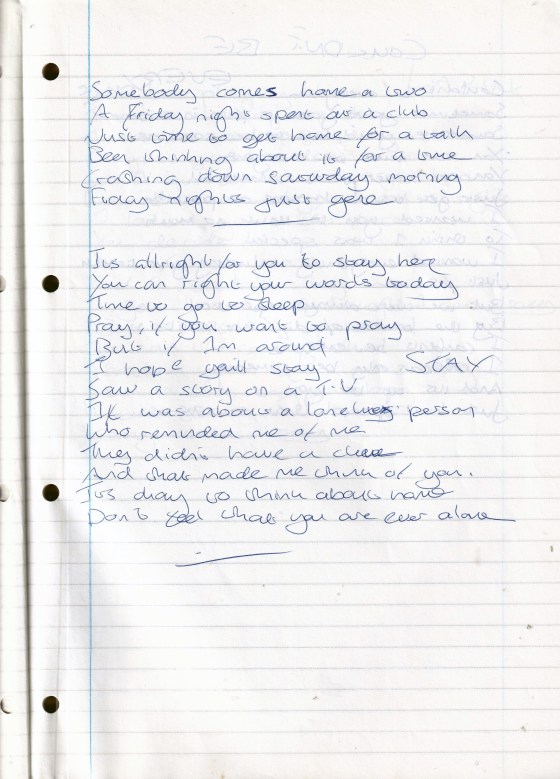 Somebody comes home a two
A Friday night spent at a club
Just time to get home for a bath
Been thinking about it for a time
Crashing down Saturday morning
Friday nights just gone
Its allright for you to stay here
You can right your words today
Time to go to sleep
Pray, if you want to pray
But if Im around
I hope you'll stay STAY
Saw a story on a T.V
It was about a person
Who reminded me of me
They didn't have a clue
And that made me think of you.
Its okay to think about home
Don't feel that you are ever alone